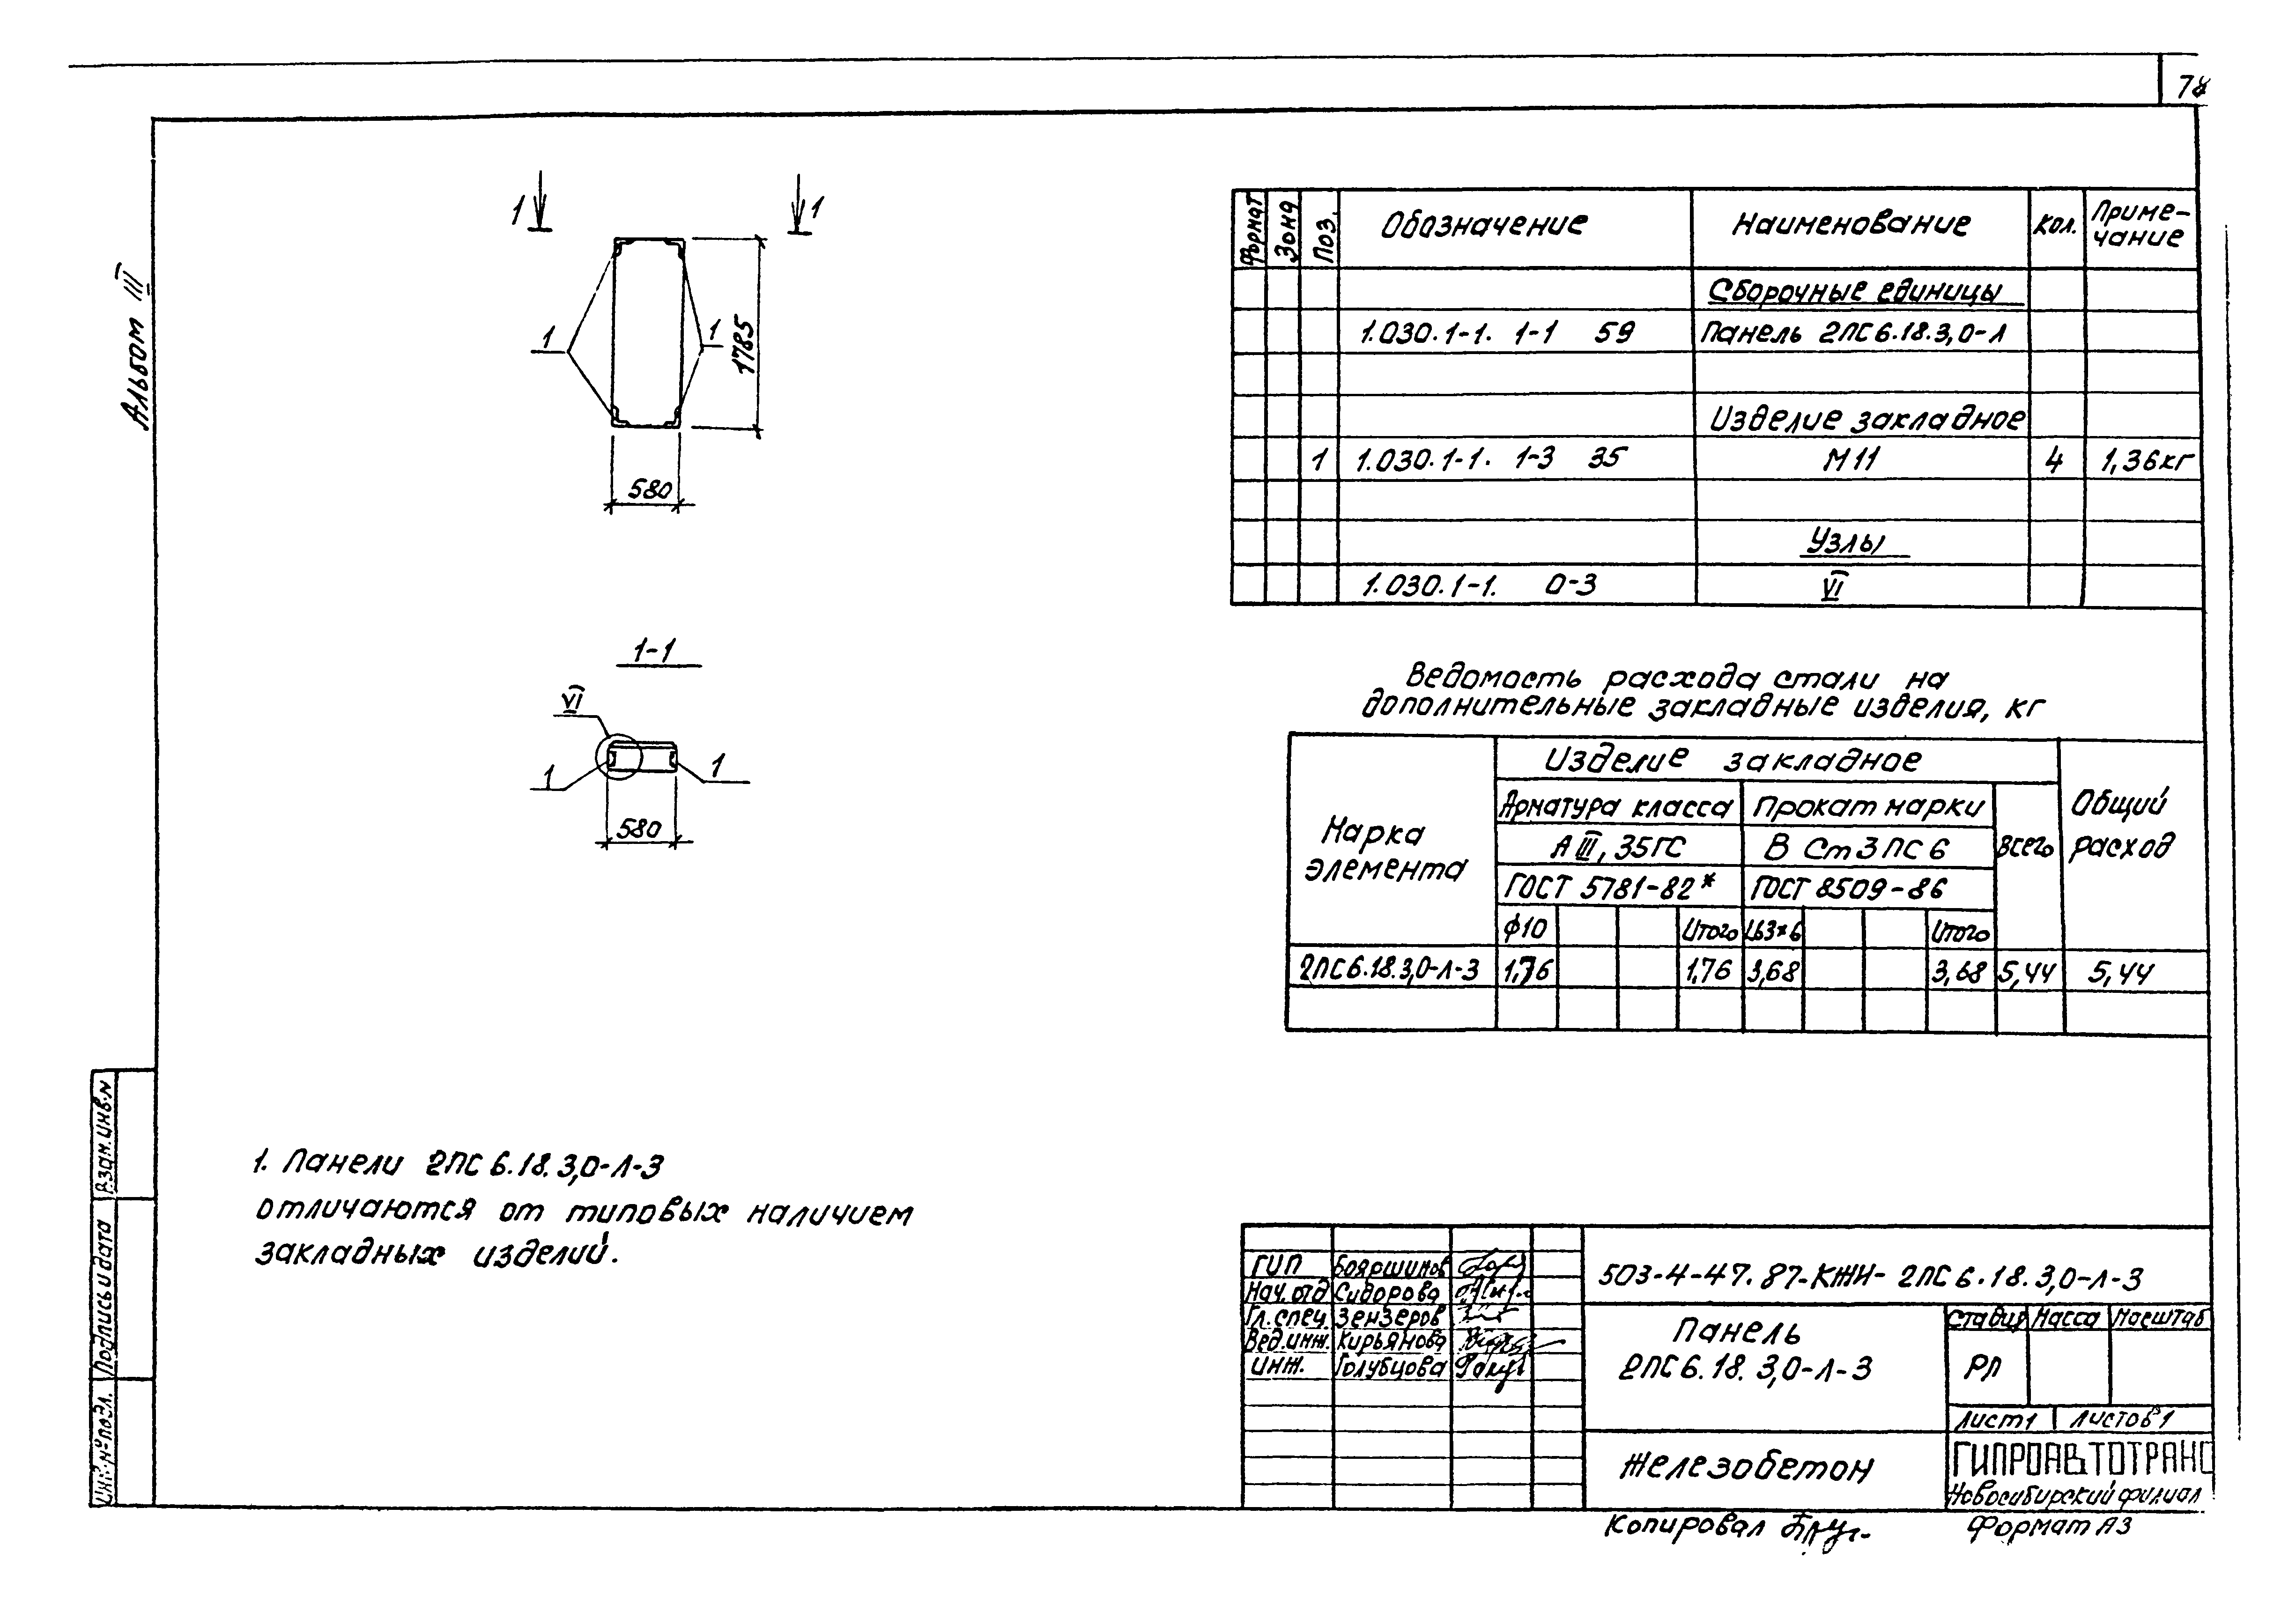 Альбом III
1 1
1 1
1785
580
1-1
VI
1 1
580
1. Панели 2ПС 6.18.3,0-Л-3
отличаются от типовых наличием
закладных изделий.
Формат Зона Поз. Обозначение Наименование Кол. Приме-
чание
Сборочные единицы
1.030.1-1. 1-1 59 Панель 2ПС 6.18.3,0-Л
Изделие закладное
1 1.030.1-1. 1-3 35 М11 4 1,36кг
Узлы
1.030.1-1. 0-3 VI
Ведомость расхода стали на
дополнительные закладные изделия, кг
Марка
элемента
Изделие закладное
Арматура класса Прокат марки
А III, 35ГС В Ст 3 пс 6 Всего
Общий
расход
ГОСТ 5781-82* ГОСТ 8509-86
ф10 Итого L63×6 Итого
2ПС 6.18.3,0-Л-3 1,76 1,76 3,68 3,68 5,44 5,44
Взам. инв. №
Подпись и дата
Инв. № подл.
ГИП Бояршинов
Нач. отд Сидорова
Гл. спец. Зензеров
Вед. инж. Кирьянова
Инж. Голубцова
503-4-47.87-КЖИ-2ПС 6.18.3,0-Л-3
Панель
2ПС 6.18.3,0-Л-3
Стадия Масса Масштаб
РП
Лист 1 Листов 1
Железобетон
ГИПРОАВТОТРАНС
Новосибирский филиал
Копировал
Формат А3